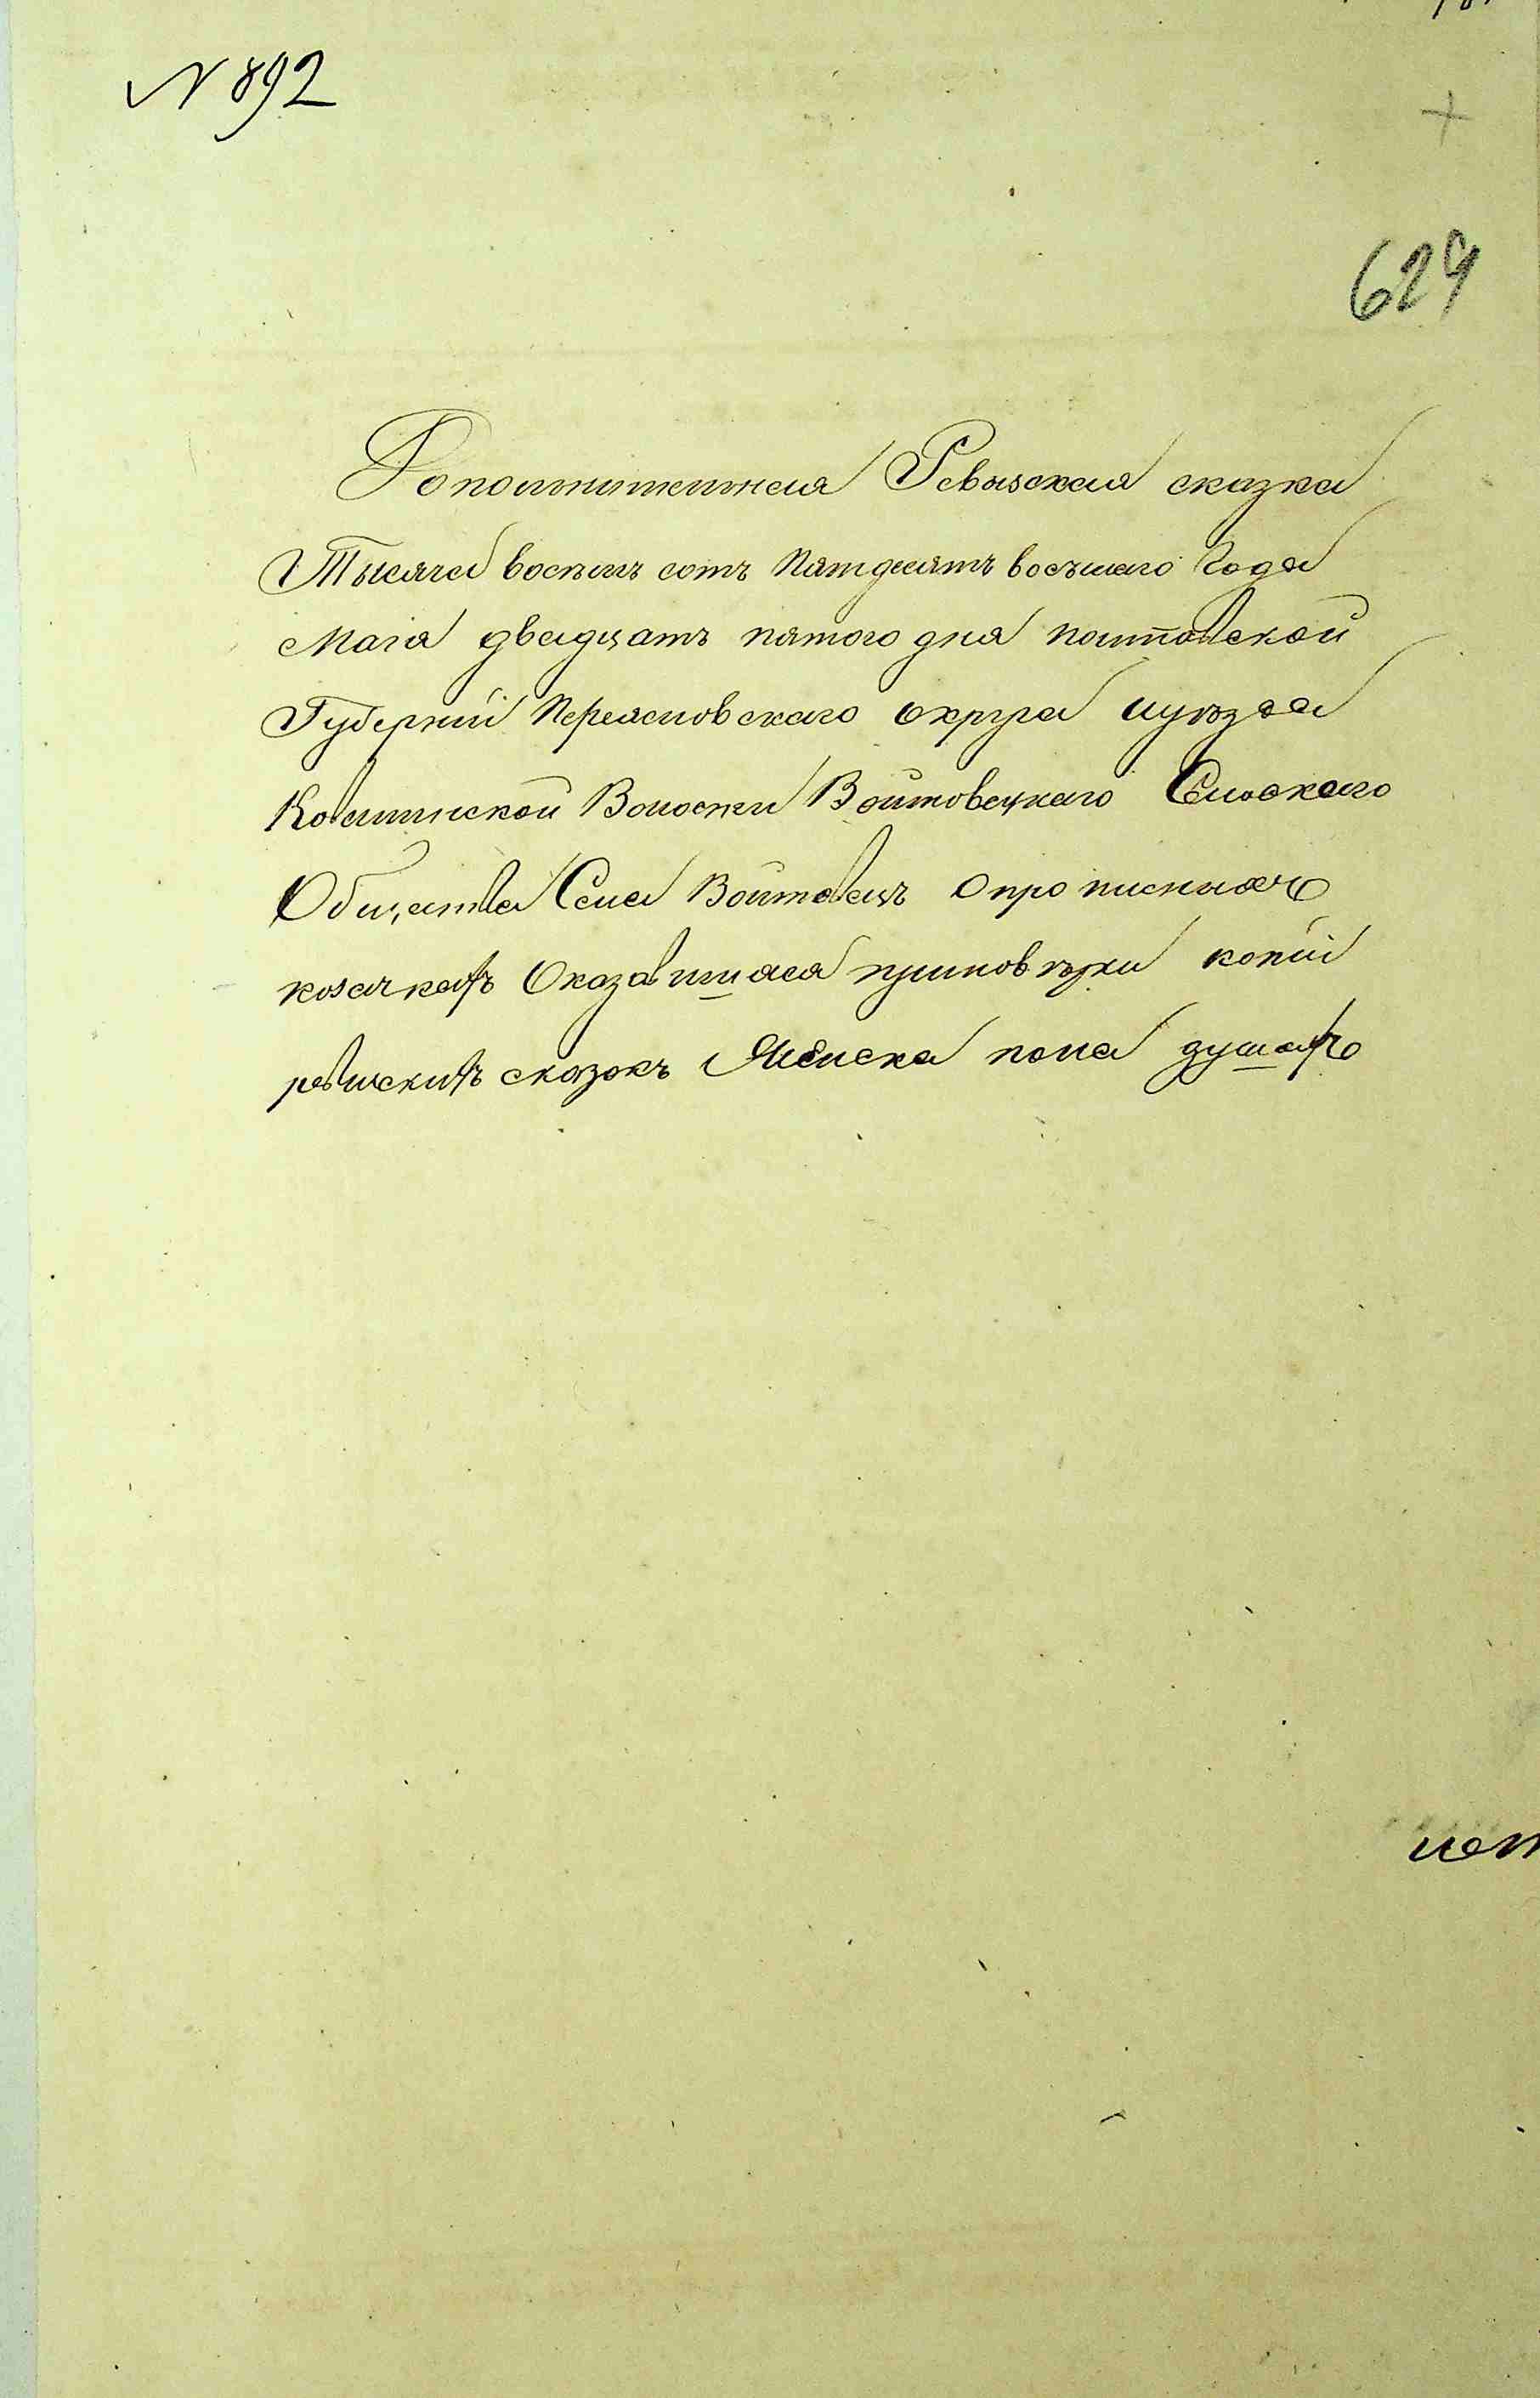 N 892
624
Дополнительная Ревизская сказка
Тысяча восемь сотъ пятдесятъ восьмаго Года
Маія двадцать пятого дня полтовской
Губерніи Переясловскаго округа иуѣзда
Ковалинской Волости Войтовецкаго Сельскаго
Общества Села Войтовецъ Опрописныхъ
козачкахъ Оказавшихся приповѣрки копій
ревискихъ сказокъ Женска пола душахъ